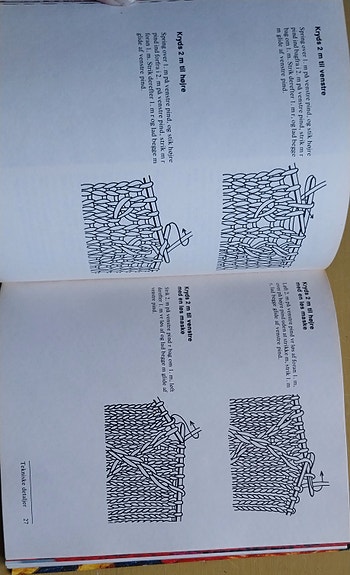 Kryds 2 m til venstre
Spring over 1. m på venstre pind, og stik højre
pind ind bagfra i 2. m på venstre pind, strik m r
bag om 1. m. Strik derefter 1. m r, og lad begge
m glide af venstre pind.
Kryds 2 m til højre
Spring over 1. m på venstre pind, og stik højre
pind ind forfra i 2. m på venstre pind, strik m r
foran 1. m. Strik derefter 1. m r og lad begge m
glide af venstre pind.
Kryds 2 m til højre
med en løs maske
Løft 2. m på venstre pind vr løs af foran 1. m,
over på højre pind uden at strikke m, strik 1. m
r, lad begge glide af venstre pind.
Kryds 2 m til venstre
med en løs maske
Strik 2. m på venstre pind r bag om 1. m, løft
derefter 1. m vr løs af og lad begge m glide af
venstre pind.
Tekniske detaljer 27